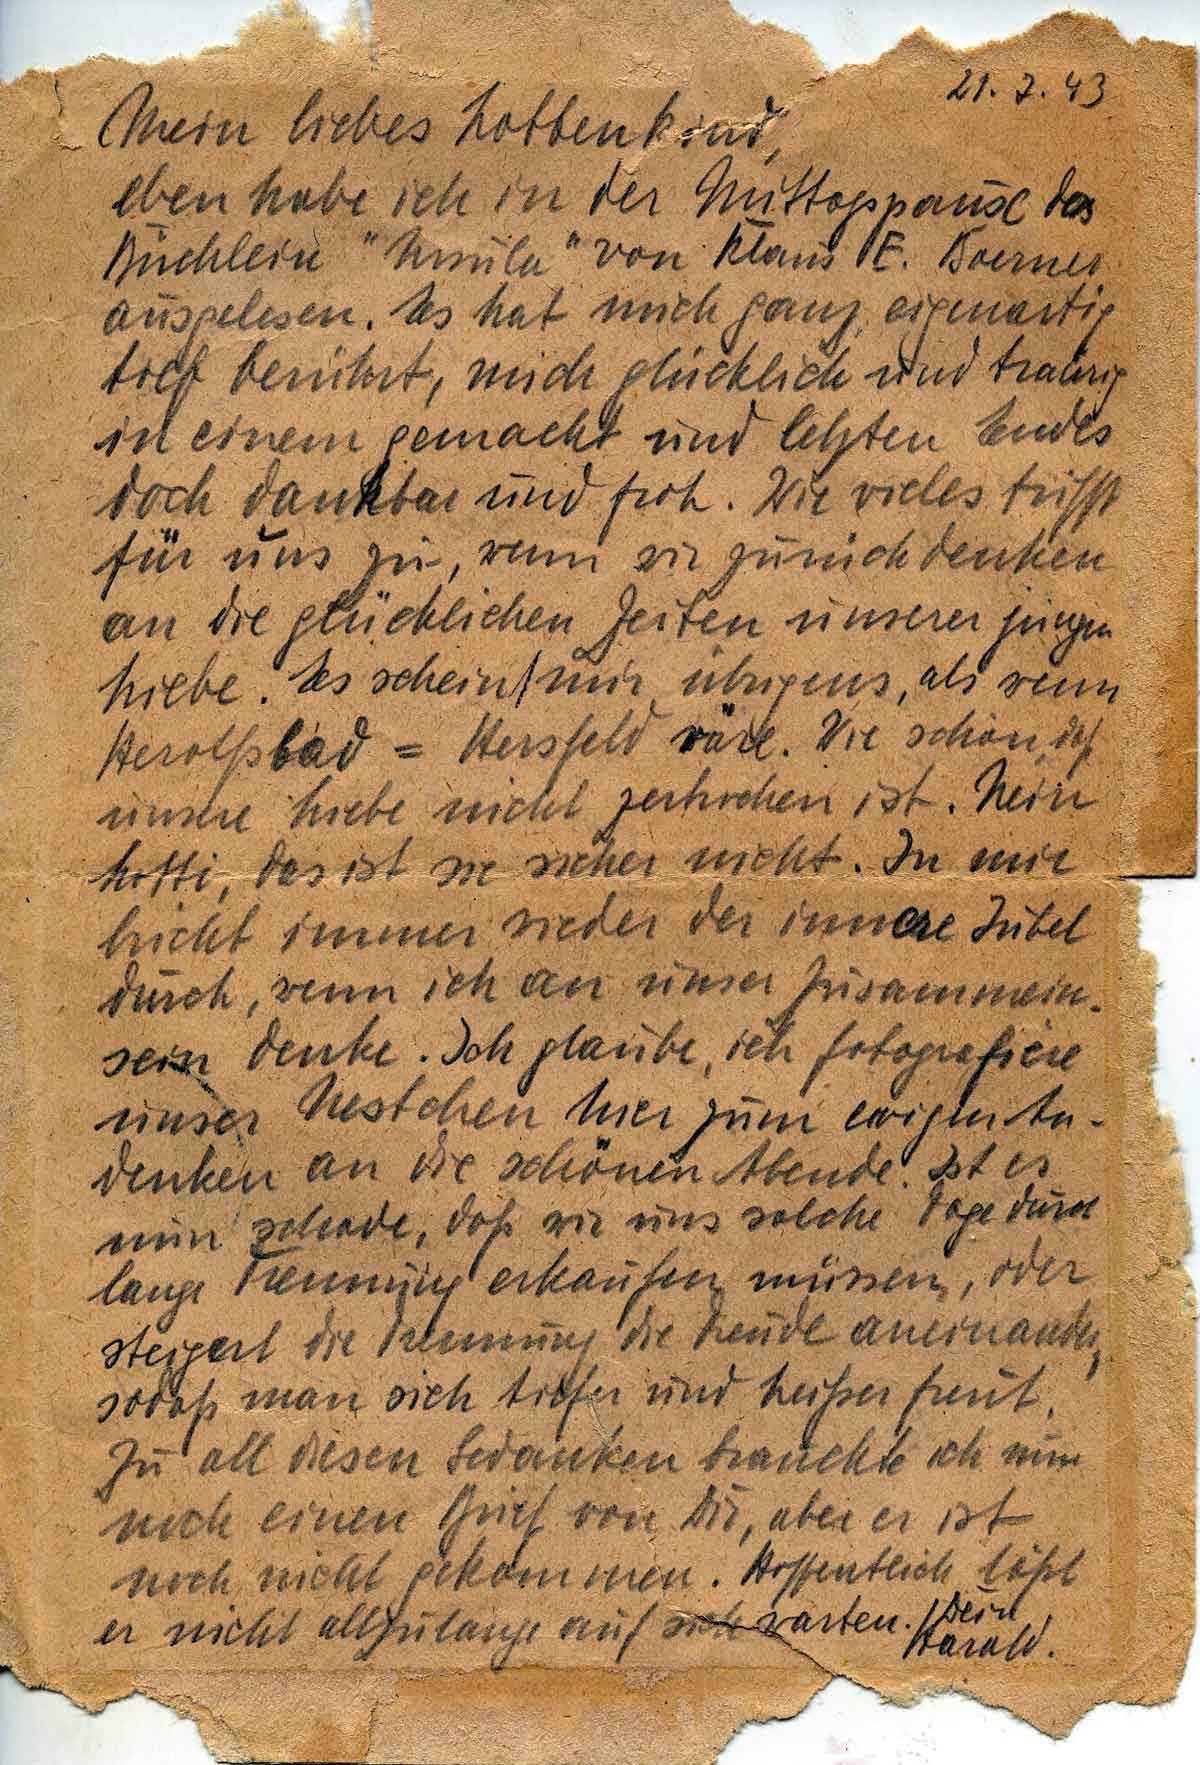 21.7.43
Mein liebes Lottenkind,
eben habe ich in der Mittagspause das
Büchlein "Ursula" von Klaus E. Boerner
ausgelesen. Es hat mich ganz eigenartig
tief berührt, mich glücklich und traurig
in einem gemacht und letzten Endes
doch dankbar und froh. Wie vieles trifft
für uns zu, wenn wir zurückdenken
an die glücklichen Zeiten unserer jungen
Liebe. Es scheint mir übrigens, als wenn
Herolfsbad = Hersfeld wäre. Wie schön, daß
unsere Liebe nicht zerbrochen ist. Nein
Lotti, das ist sie sicher nicht. In mir
bricht immer wieder der innere Jubel
durch, wenn ich an unser Zusammen-
sein denke. Ich glaube, ich fotografiere
unser Nestchen hier zum ewigen An-
denken an die schönen Abende. Ist es
nun schade, daß wir uns solche Tage durch
lange Trennung erkaufen müssen, oder
steigert die Trennung die Freude aneinander,
sodaß man sich tiefer und heißer freut.
Zu all diesen Gedanken brauchte ich nun
noch einen Brief von Dir, aber er ist
noch nicht gekommen. Hoffentlich läßt
er nicht allzulange auf sich warten. Dein
Harald.